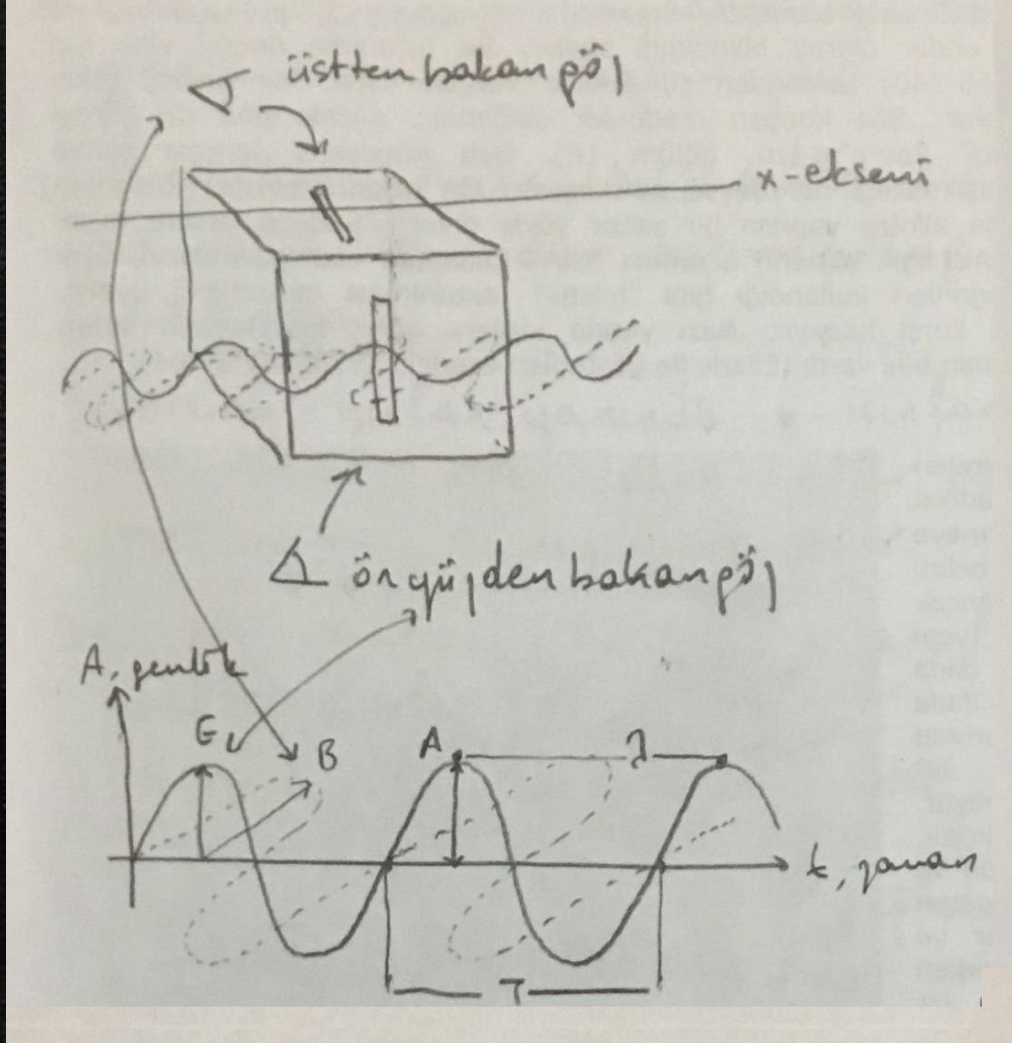 üstten bakan göz
x-ekseni
önyüzden bakan göz
A, genlik
E
B
A
λ
t, zaman
T